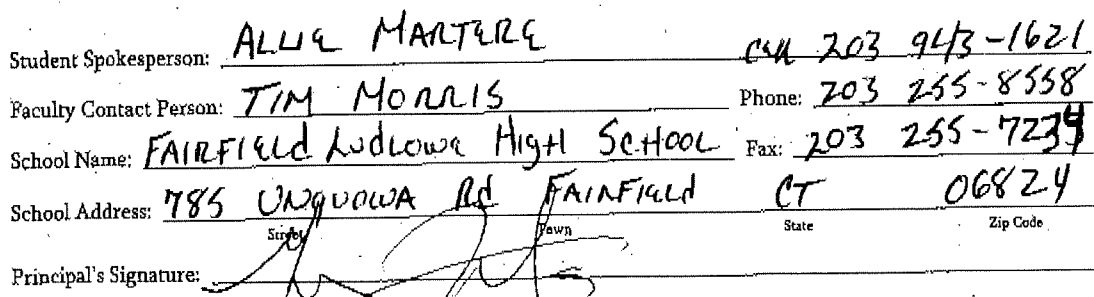 Student Spokesperson: ALLIE MARTERE Cell 203 943-1621
Faculty Contact Person: TIM MORRIS Phone: 203 255-8558
School Name: FAIRFIELD LUDLOWE HIGH SCHOOL Fax: 203 255-7234
School Address: 785 UNQUOWA Rd FAIRFIELD CT 06824
Street Town State Zip Code
Principal's Signature: